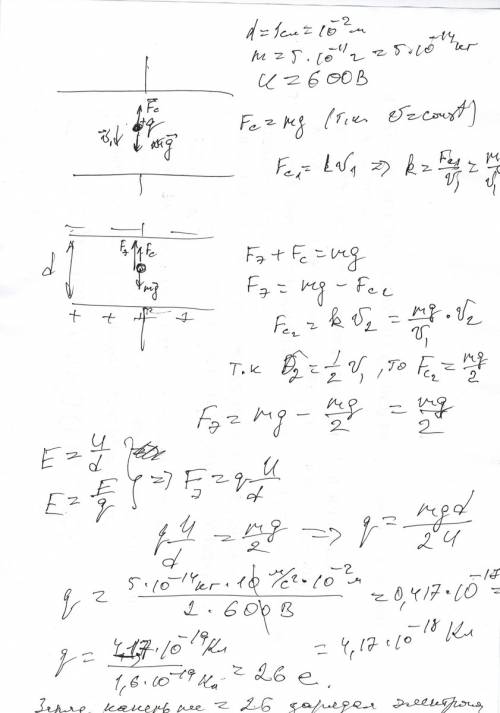 d = 1см = 10⁻² м
m = 5·10⁻¹¹ г = 5·10⁻¹⁴ кг
U = 600 В
Fc
q
v₁
mg
Fc = mg (т.к. v = const)
Fc₁ = kv₁ => k = Fc₁/v₁ = m
v₁
d
Fэ Fc
mg
+ + + +
Fэ + Fc = mg
Fэ = mg - Fc₂
Fc₂ = kv₂ = mg/v₁ · v₂
т.к. v₂ = 1/2 v₁, то Fc₂ = mg/2
Fэ = mg - mg/2 = mg/2
E = U/d
E = F/q } => Fэ = q U/d
q U/d = mg/2 => q = mgd/2U
q = 5·10⁻¹⁴ кг · 10 м/с² · 10⁻² м / 2·600 В = 0,417·10⁻¹⁷ =
= 4,17·10⁻¹⁸ Кл
q = 4,17·10⁻¹⁹ Кл / 1,6·10⁻¹⁹ Кл = 26 e.
= 26 заряда электрона